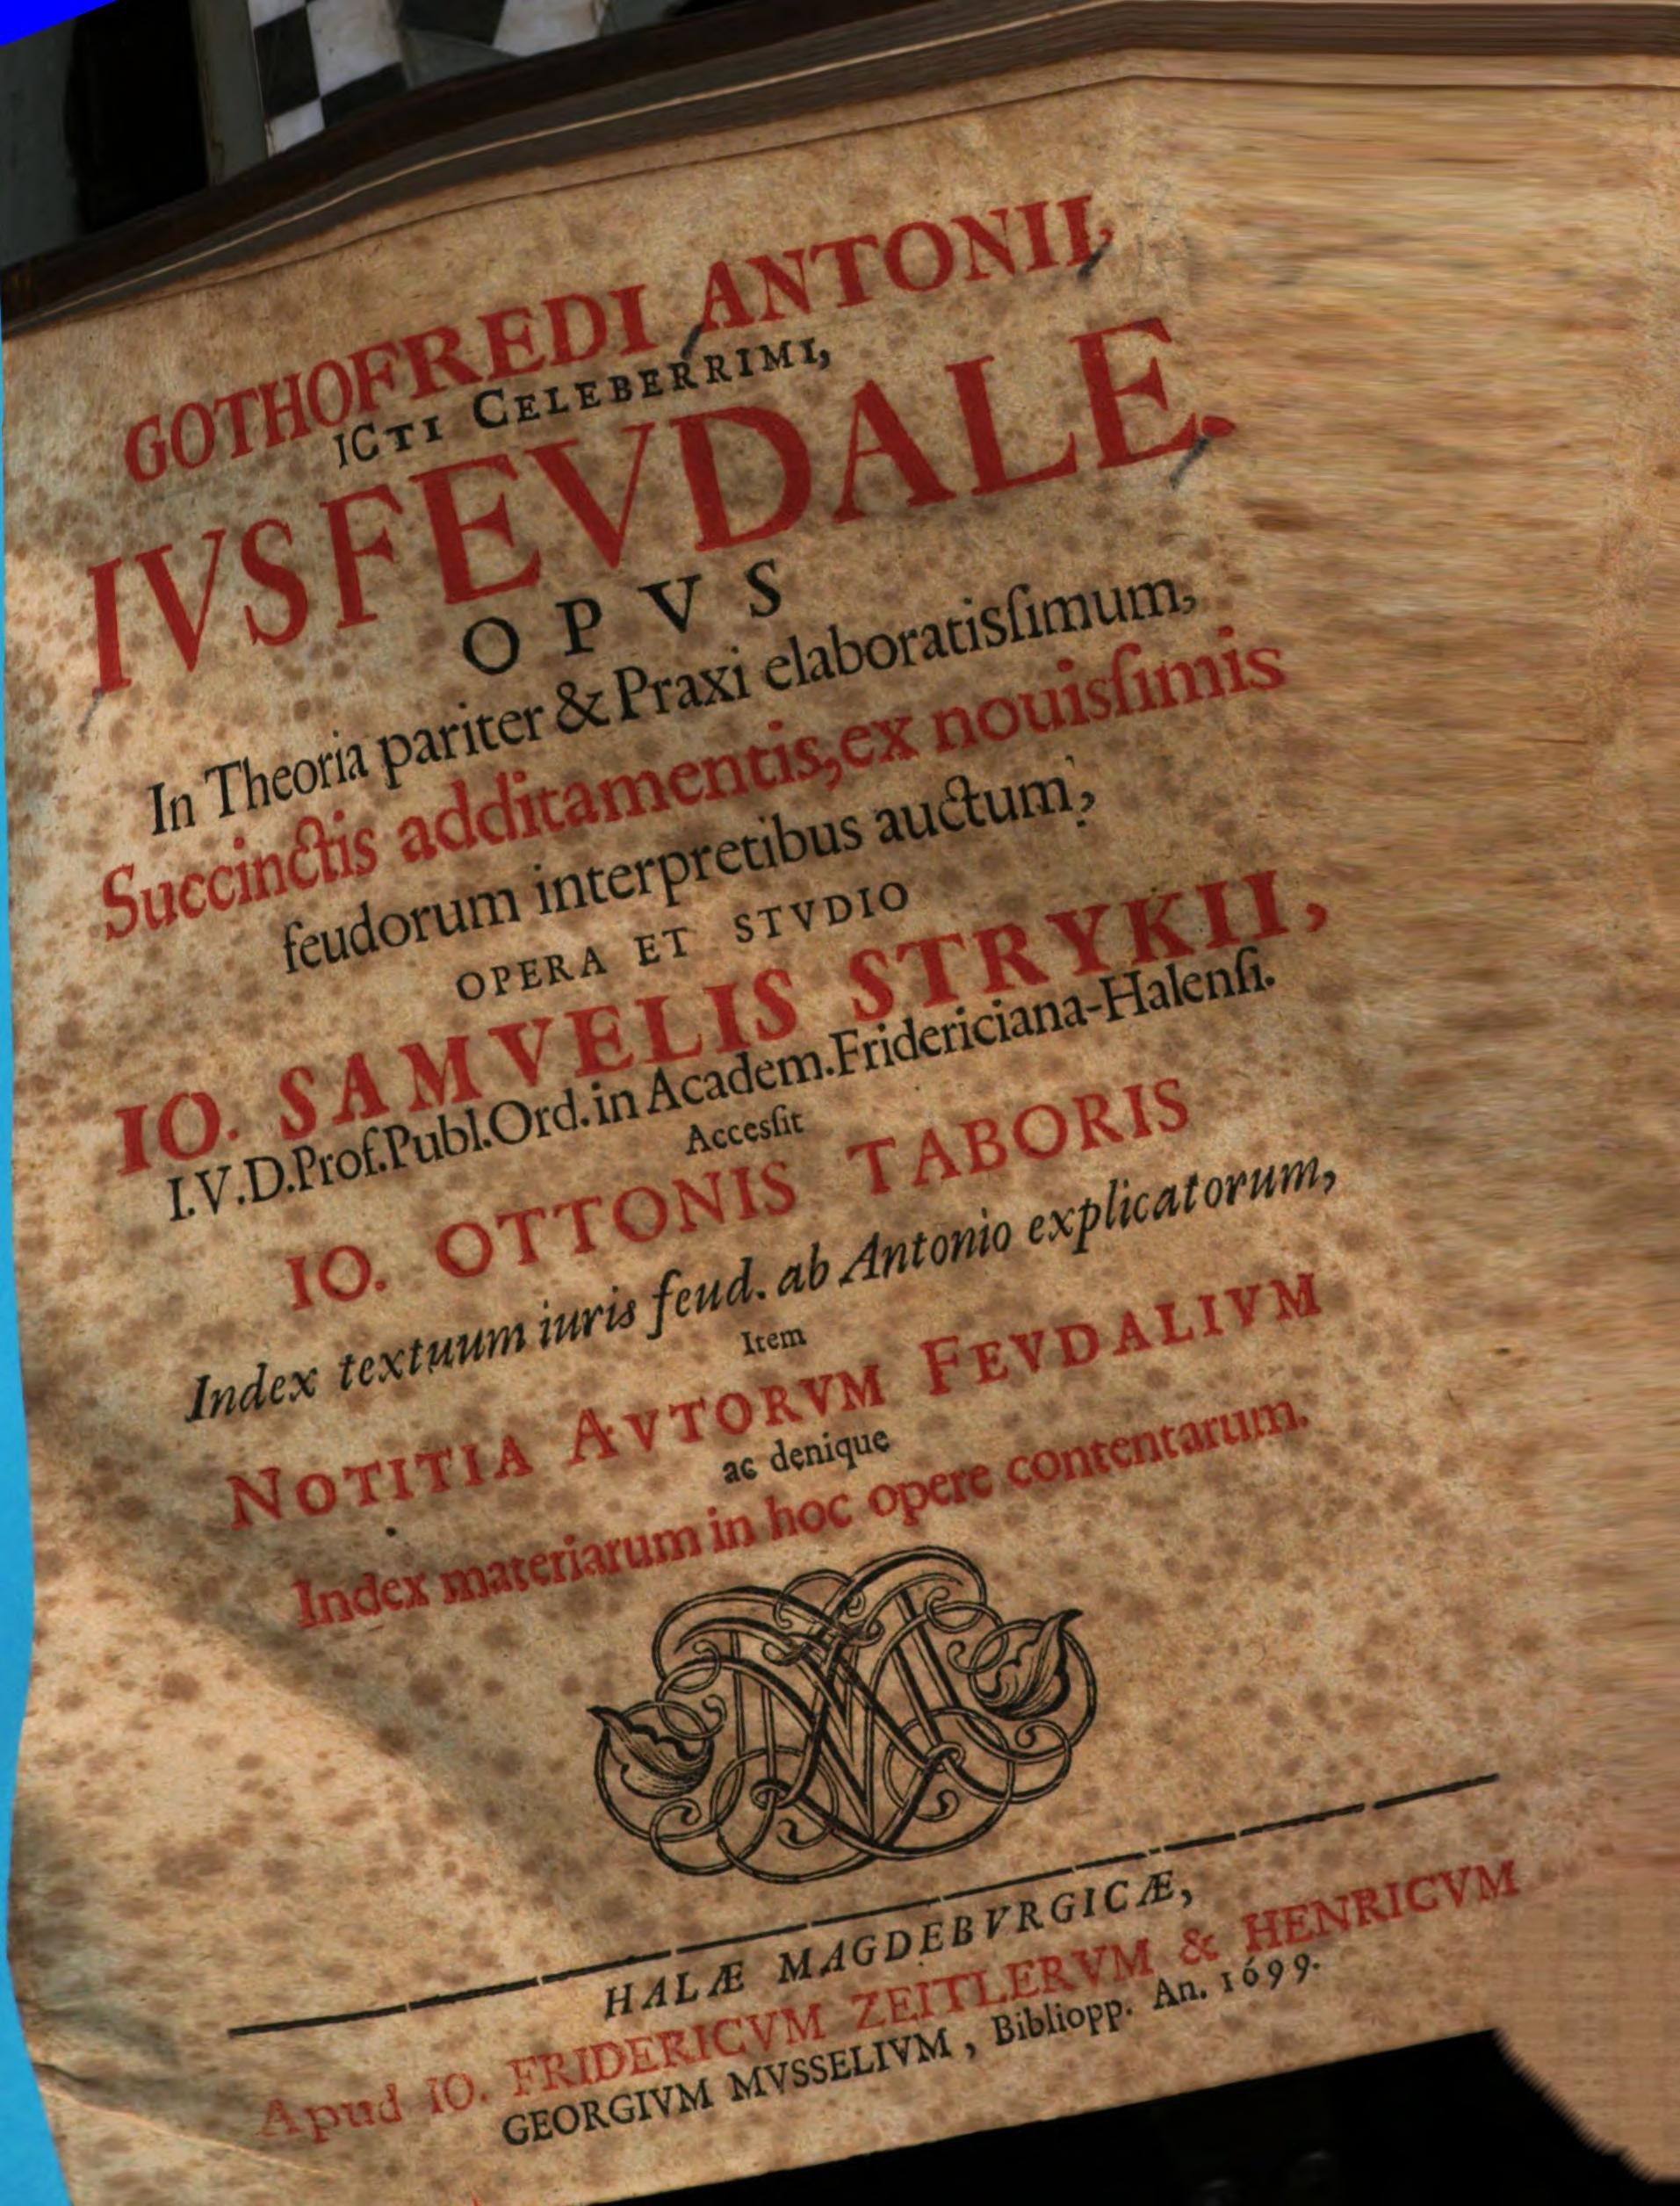 GOTHOFREDI ANTONII,
ICTI CELEBERRIMI,
IVS FEVDALE.
OPVS
In Theoria pariter & Praxi elaboratisſimum,
Succinctis additamentis, ex nouisſimis
feudorum interpretibus auctum,
OPERA ET STVDIO
IO. SAMVELIS STRYKII,
I.V.D.Prof.Publ.Ord.in Academ.Fridericiana-Halenſi.
Accesſit
IO. OTTONIS TABORIS
Index textuum iuris feud. ab Antonio explicatorum,
Item
NOTITIA AVTORVM FEVDALIVM
ac denique
Index materiarum in hoc opere contentarum.
HALÆ MAGDEBVRGICÆ,
Apud IO. FRIDERICVM ZEITLERVM & HENRICVM
GEORGIVM MVSSELIVM, Bibliopp. An. 1699.